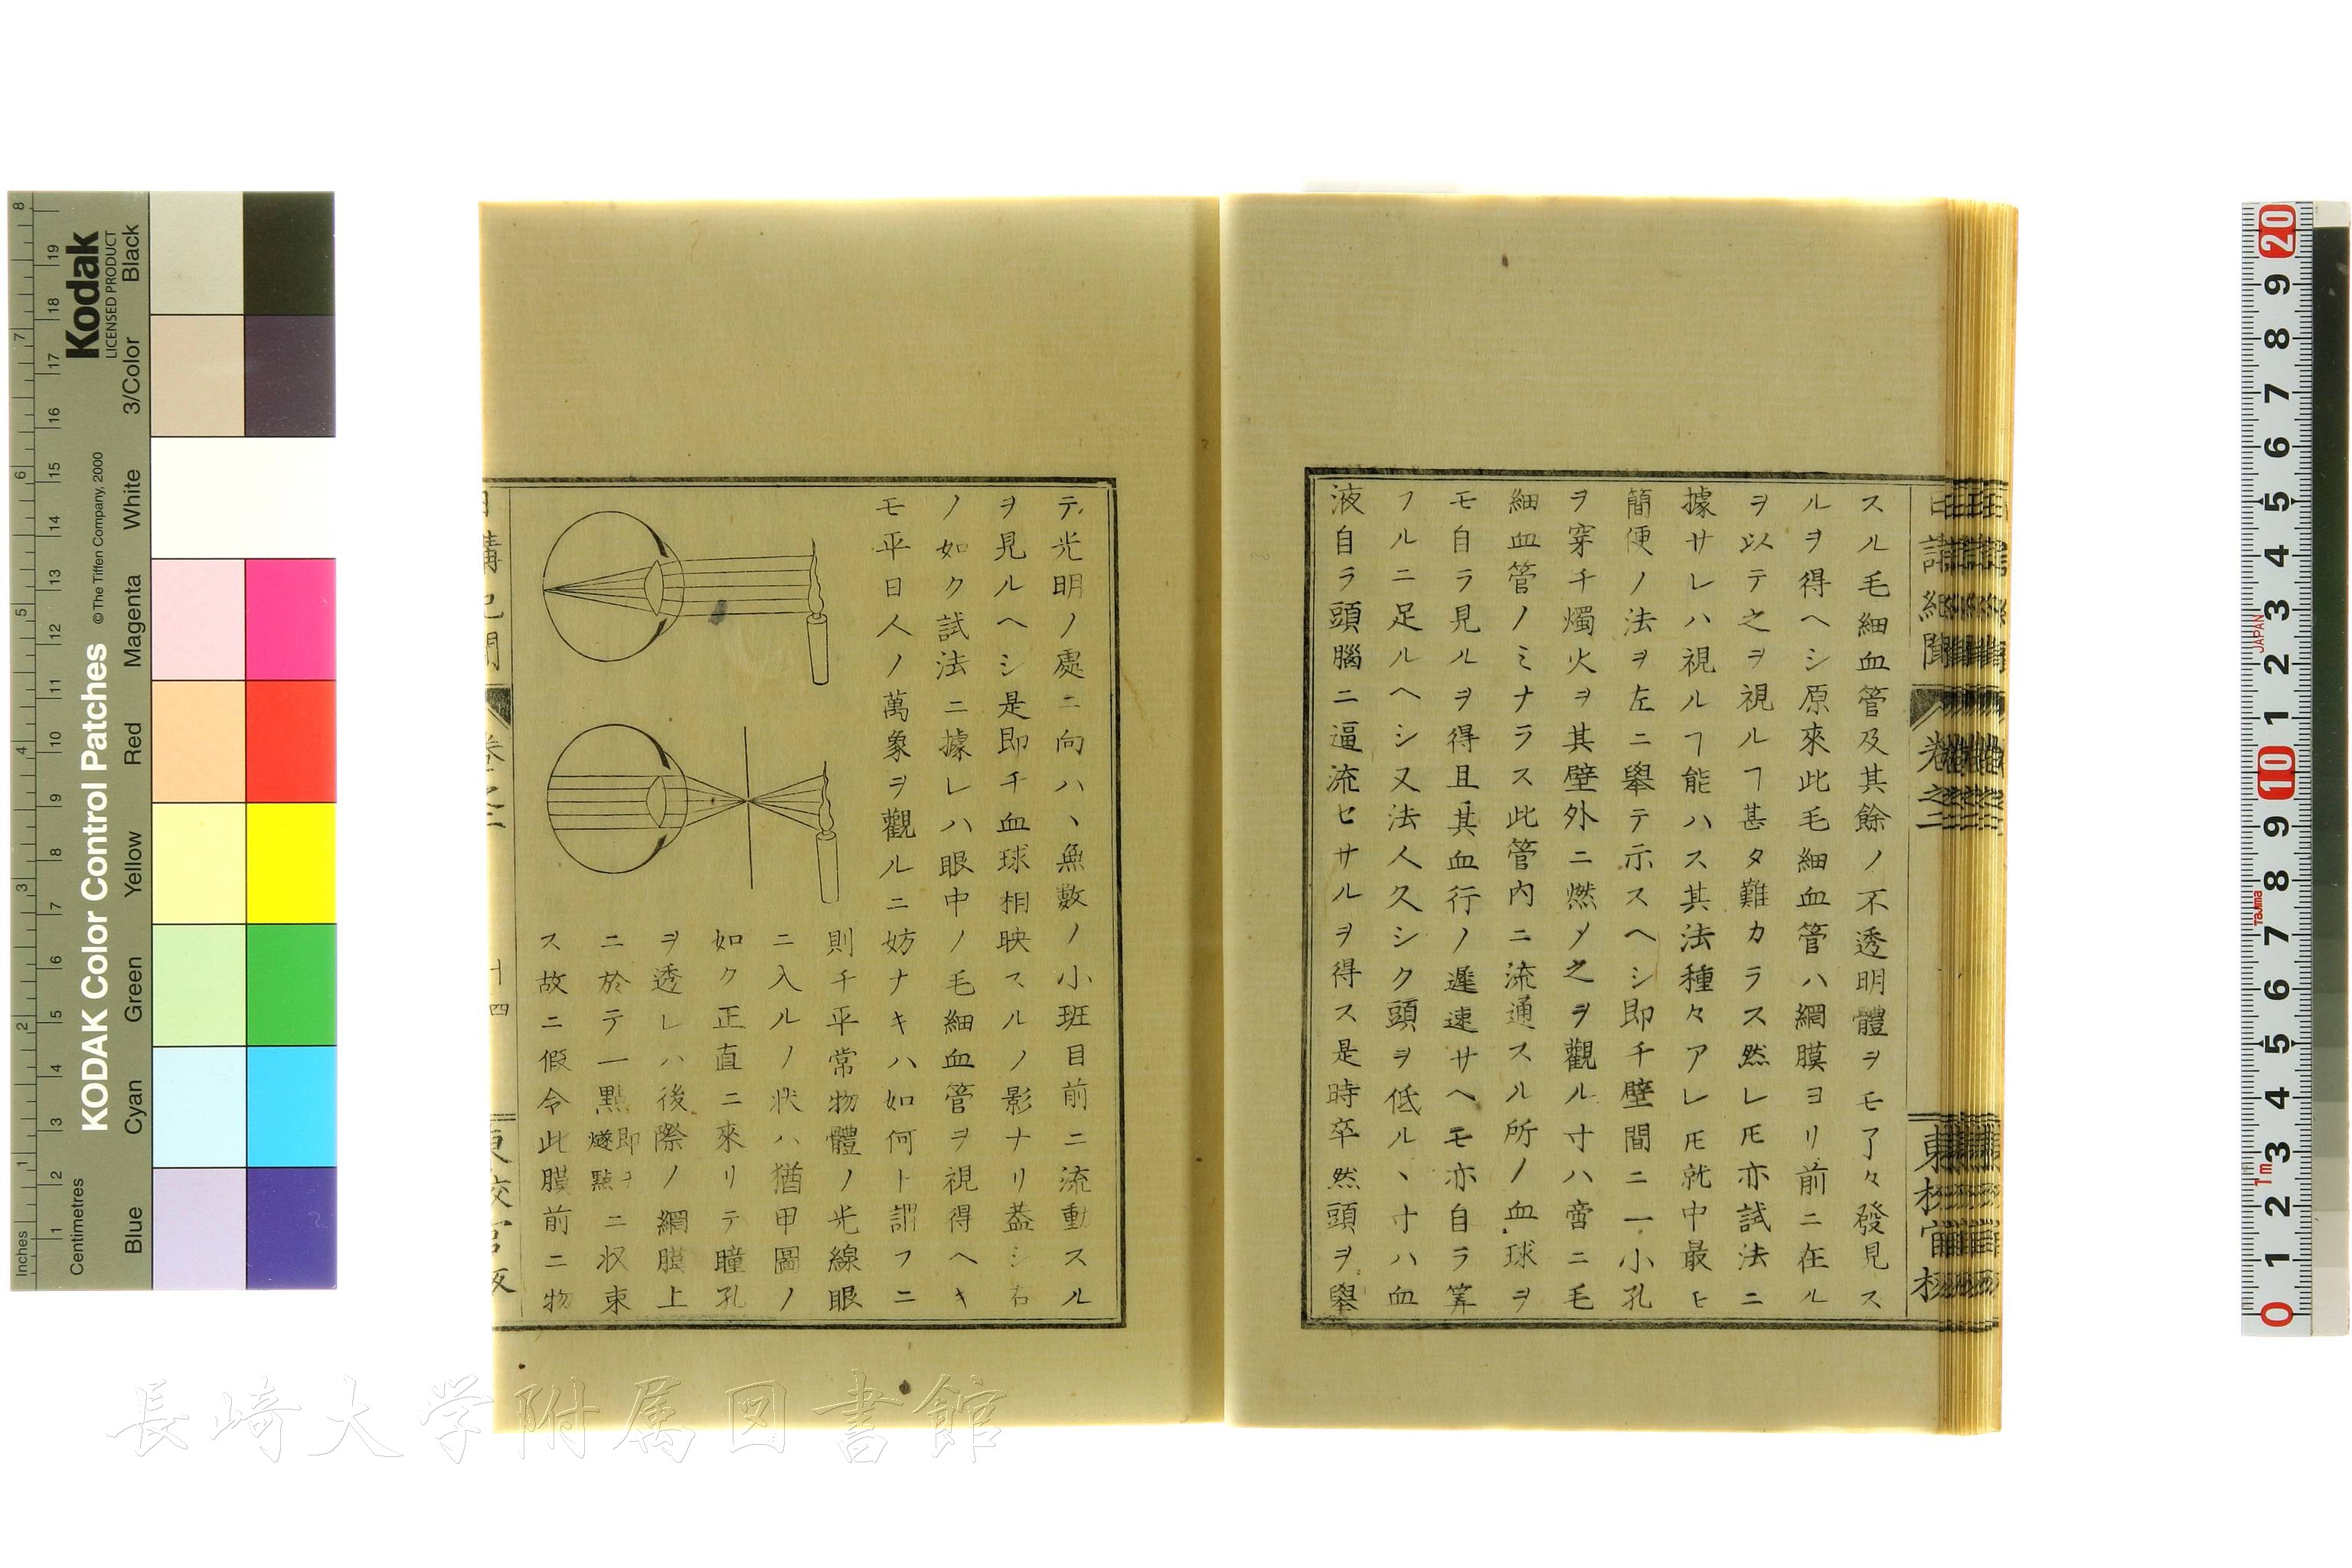 スル毛細血管及其餘ノ不透明體ヲモ了々發見ス
ルヲ得ヘシ原來此毛細血管ハ網膜ヨリ前ニ在ル
ヲ以テ之ヲ視ルヿ甚タ難カラス然レ𪜈亦試法ニ
據サレハ視ルヿ能ハス其法種々アレ𪜈就中最モ
簡便ノ法ヲ左ニ擧テ示スヘシ即チ壁間ニ一小孔
ヲ穿チ燭火ヲ其壁外ニ燃メ之ヲ觀ル寸ハ啻ニ毛
細血管ノミナラス此管内ニ流通スル所ノ血球ヲ
モ自ラ見ルヲ得且其血行ノ遲速サヘモ亦自ラ筭
フルニ足ルヘシ又法人久シク頭ヲ低ルヽ寸ハ血
液自ラ頭腦ニ逼流セサルヲ得ス是時卒然頭ヲ擧
卷之二
テ光明ノ處ニ向ハヽ無數ノ小班目前ニ流動スル
ヲ見ルヘシ是即チ血球相映スルノ影ナリ蓋シ右
ノ如ク試法ニ據レハ眼中ノ毛細血管ヲ視得ヘキ
モ平日人ノ萬象ヲ觀ルニ妨ナキハ如何ト謂フニ
則チ平常物體ノ光線眼
ニ入ルノ狀ハ猶甲圖ノ
如ク正直ニ來リテ瞳孔
ヲ透レハ後際ノ網膜上
ニ於テ一點即チ燧點ニ收束
ス故ニ假令此膜前ニ物
十四
長崎大学附属図書館
Kodak
LICENSED PRODUCT
KODAK Color Control Patches
© The Tiffen Company, 2000
Inches
Centimetres
Black
3/Color
White
Magenta
Red
Yellow
Green
Cyan
Blue
1 2 3 4 5 6 7 8
1 2 3 4 5 6 7 8 9 10 11 12 13 14 15 16 17 18 19
0 1 2 3 4 5 6 7 8 9 10 1 2 3 4 5 6 7 8 9 20
JAPAN
Tajima
1m